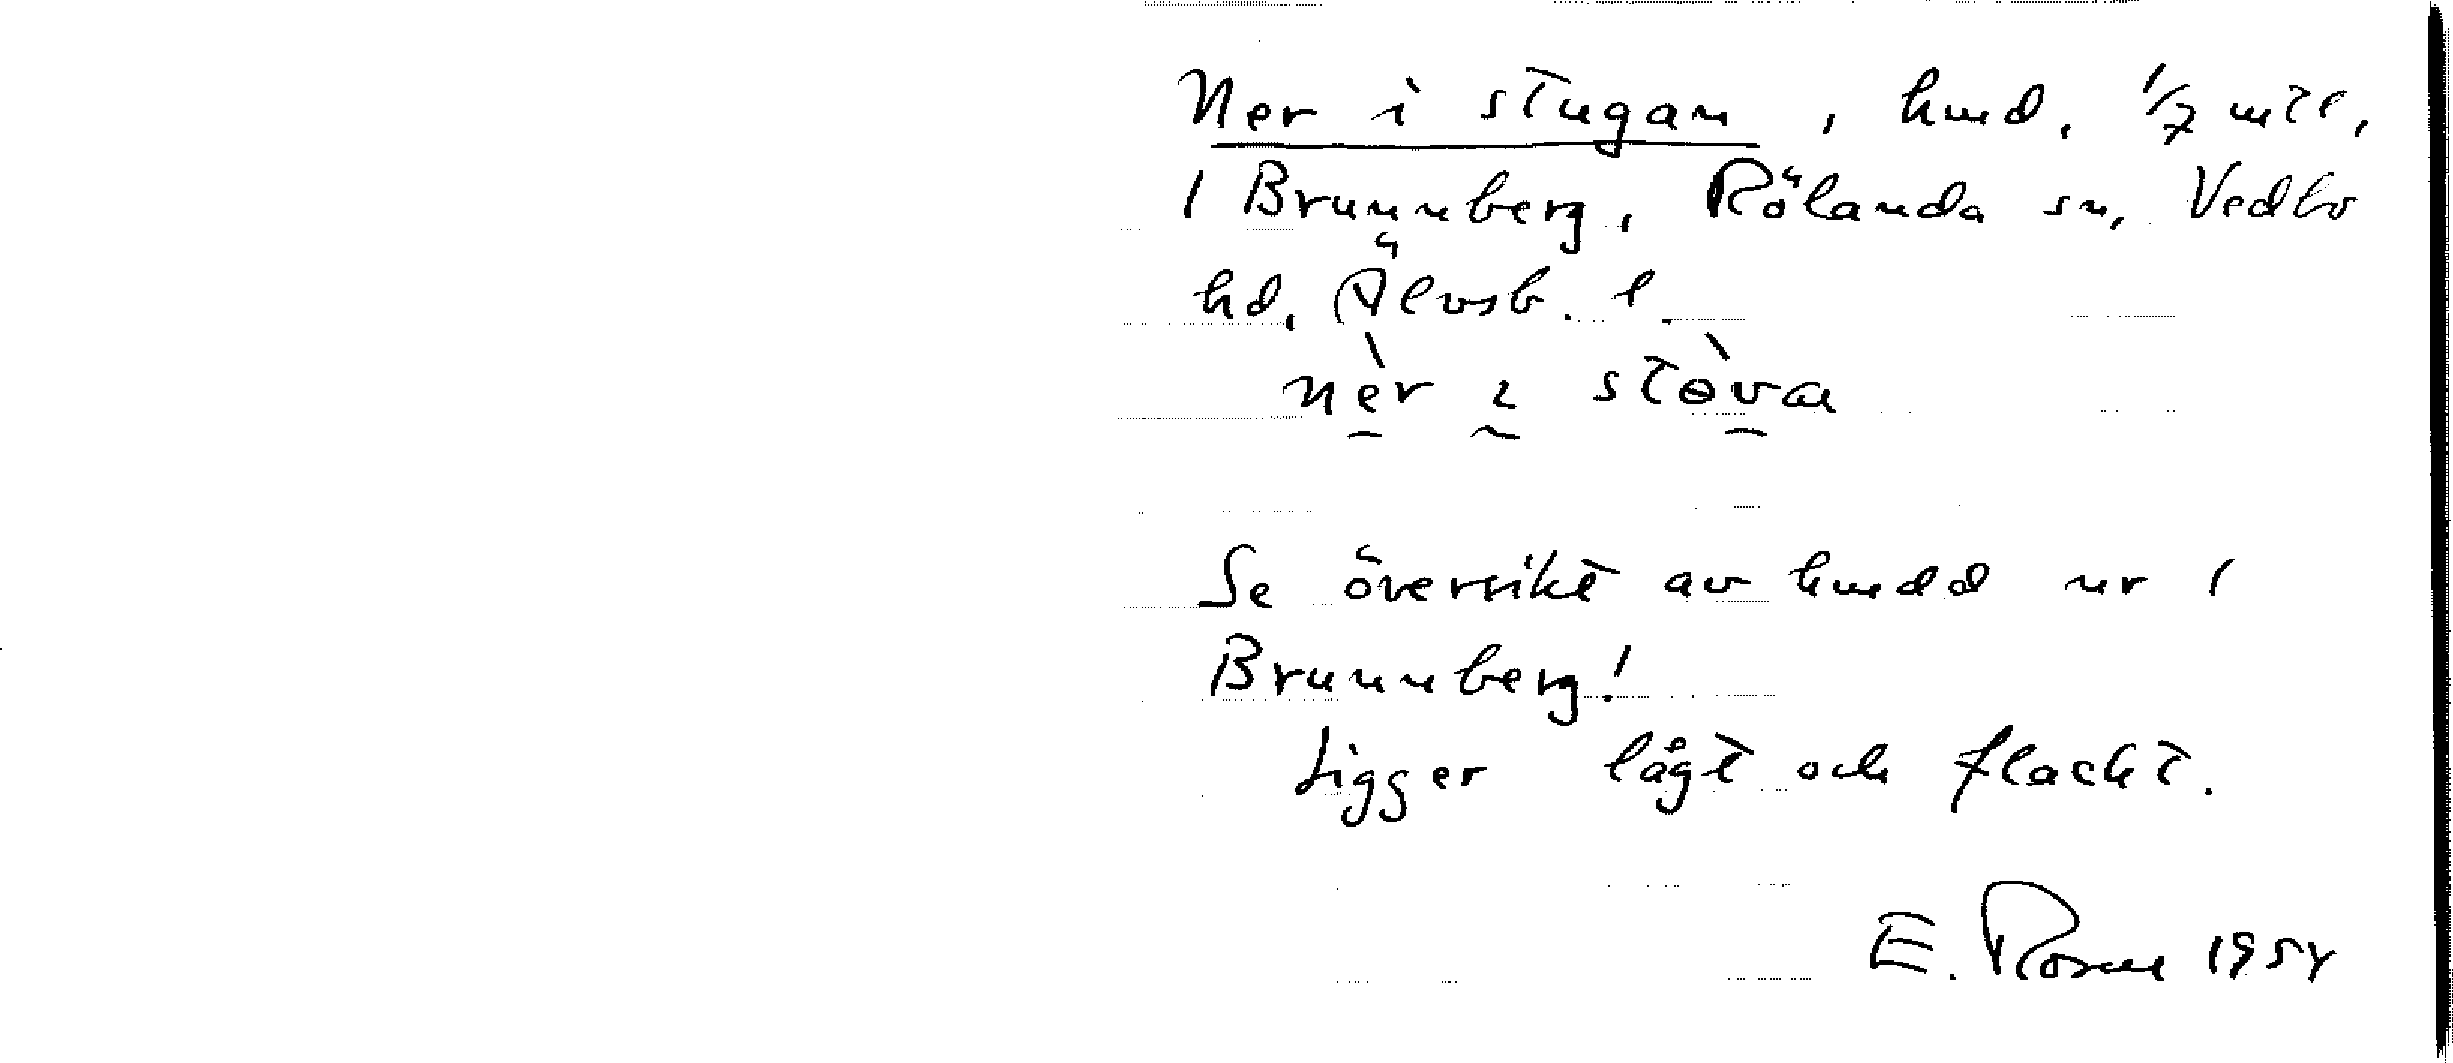 Ner i stugan, hmd. 1/7 mtl,
1 Brunnberg, Rölanda sn, Vedbo
hd, Älvsb. l.
nèr ɩ stòva
Se översikt av hmdd nr 1
Brunnberg!
Ligger lågt och flackt.
E. Rosell 1954